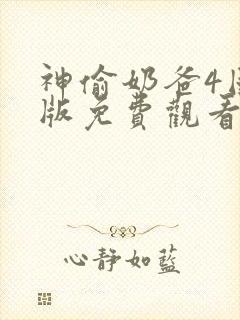 神偷奶爸4
版免費觀看
心靜如藍